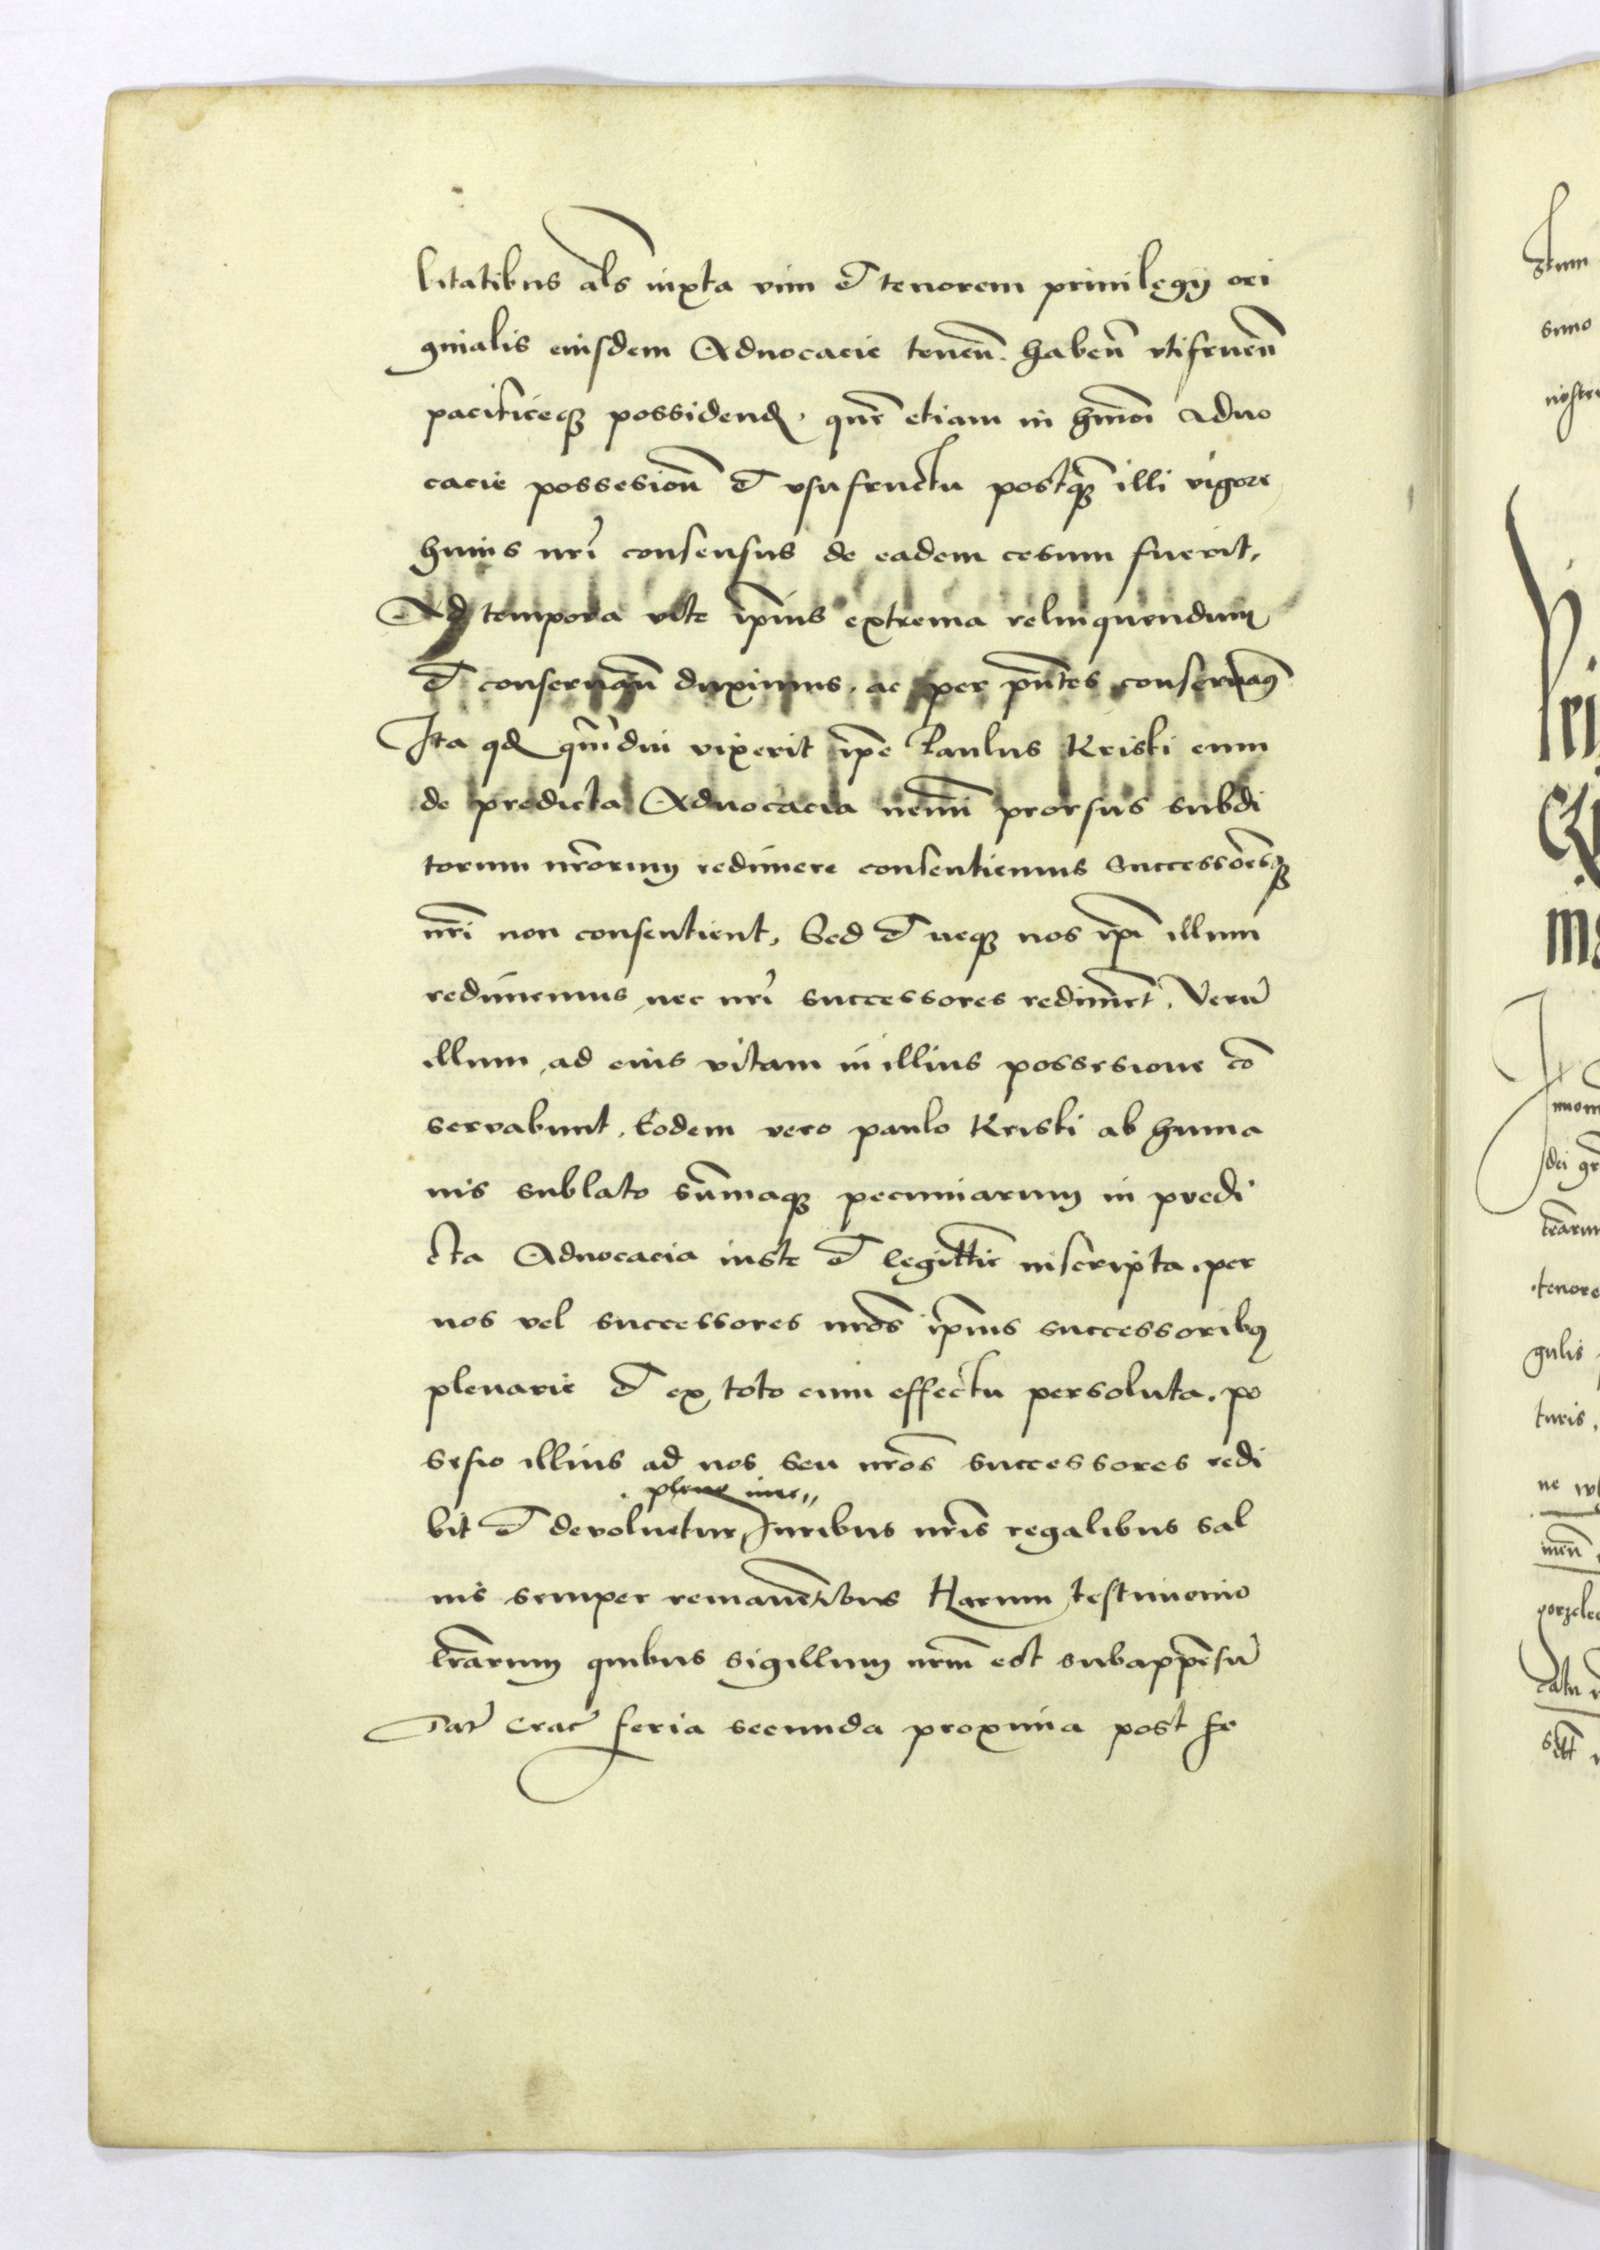 litatibus als iuxta vim et tenorem privilegij ori
ginalis eiusdem Advocacie tenen̄. haben̄ utifruen̄
pacificeq̨ possidend. quē etiam in hm̄oi Advo
cacie possesion̄ et usufructu postq̨ illi vigore
huius nr̄i consensus de eadem cesum fuerit,
Ad tempora vite ip̄ius extrema relinquendum
et conservan̄ duximus. ac per pn̄tes conservam9
Ita qd qm̄diu vixerit ip̄e Paulus Kriski eum
de predicta Advocacia nemī prorsus subdi
torum nr̄orum redimere consentiemus Successoresq̨
nr̄i non consentient, Sed et neq̨ nos ip̄i illum
redimemus nec nr̄i successores rediment. Verū
illum ad eius vitam in illius possesione cō
servabunt. Eodem vero paulo Kriski ab huma
nis sublato sūmaq̨ pecuniarum in predi
cta Advocacia iuste et legittie inscripta. per
nos vel successores nr̄os ip̄ius successorib9
plenarie et ex toto cum effectu persoluta. po
sesio illius ad nos seu nr̄os successores redi
. pleno iure,,
bit et devoluetur, Iuribus nr̄is regalibus sal
uis semper remanēntibus Harum testimonio
lr̄arum quibus sigillum nrm̄ est subappēsū
Dat̄ Crac̄ feria secunda proxima post fe